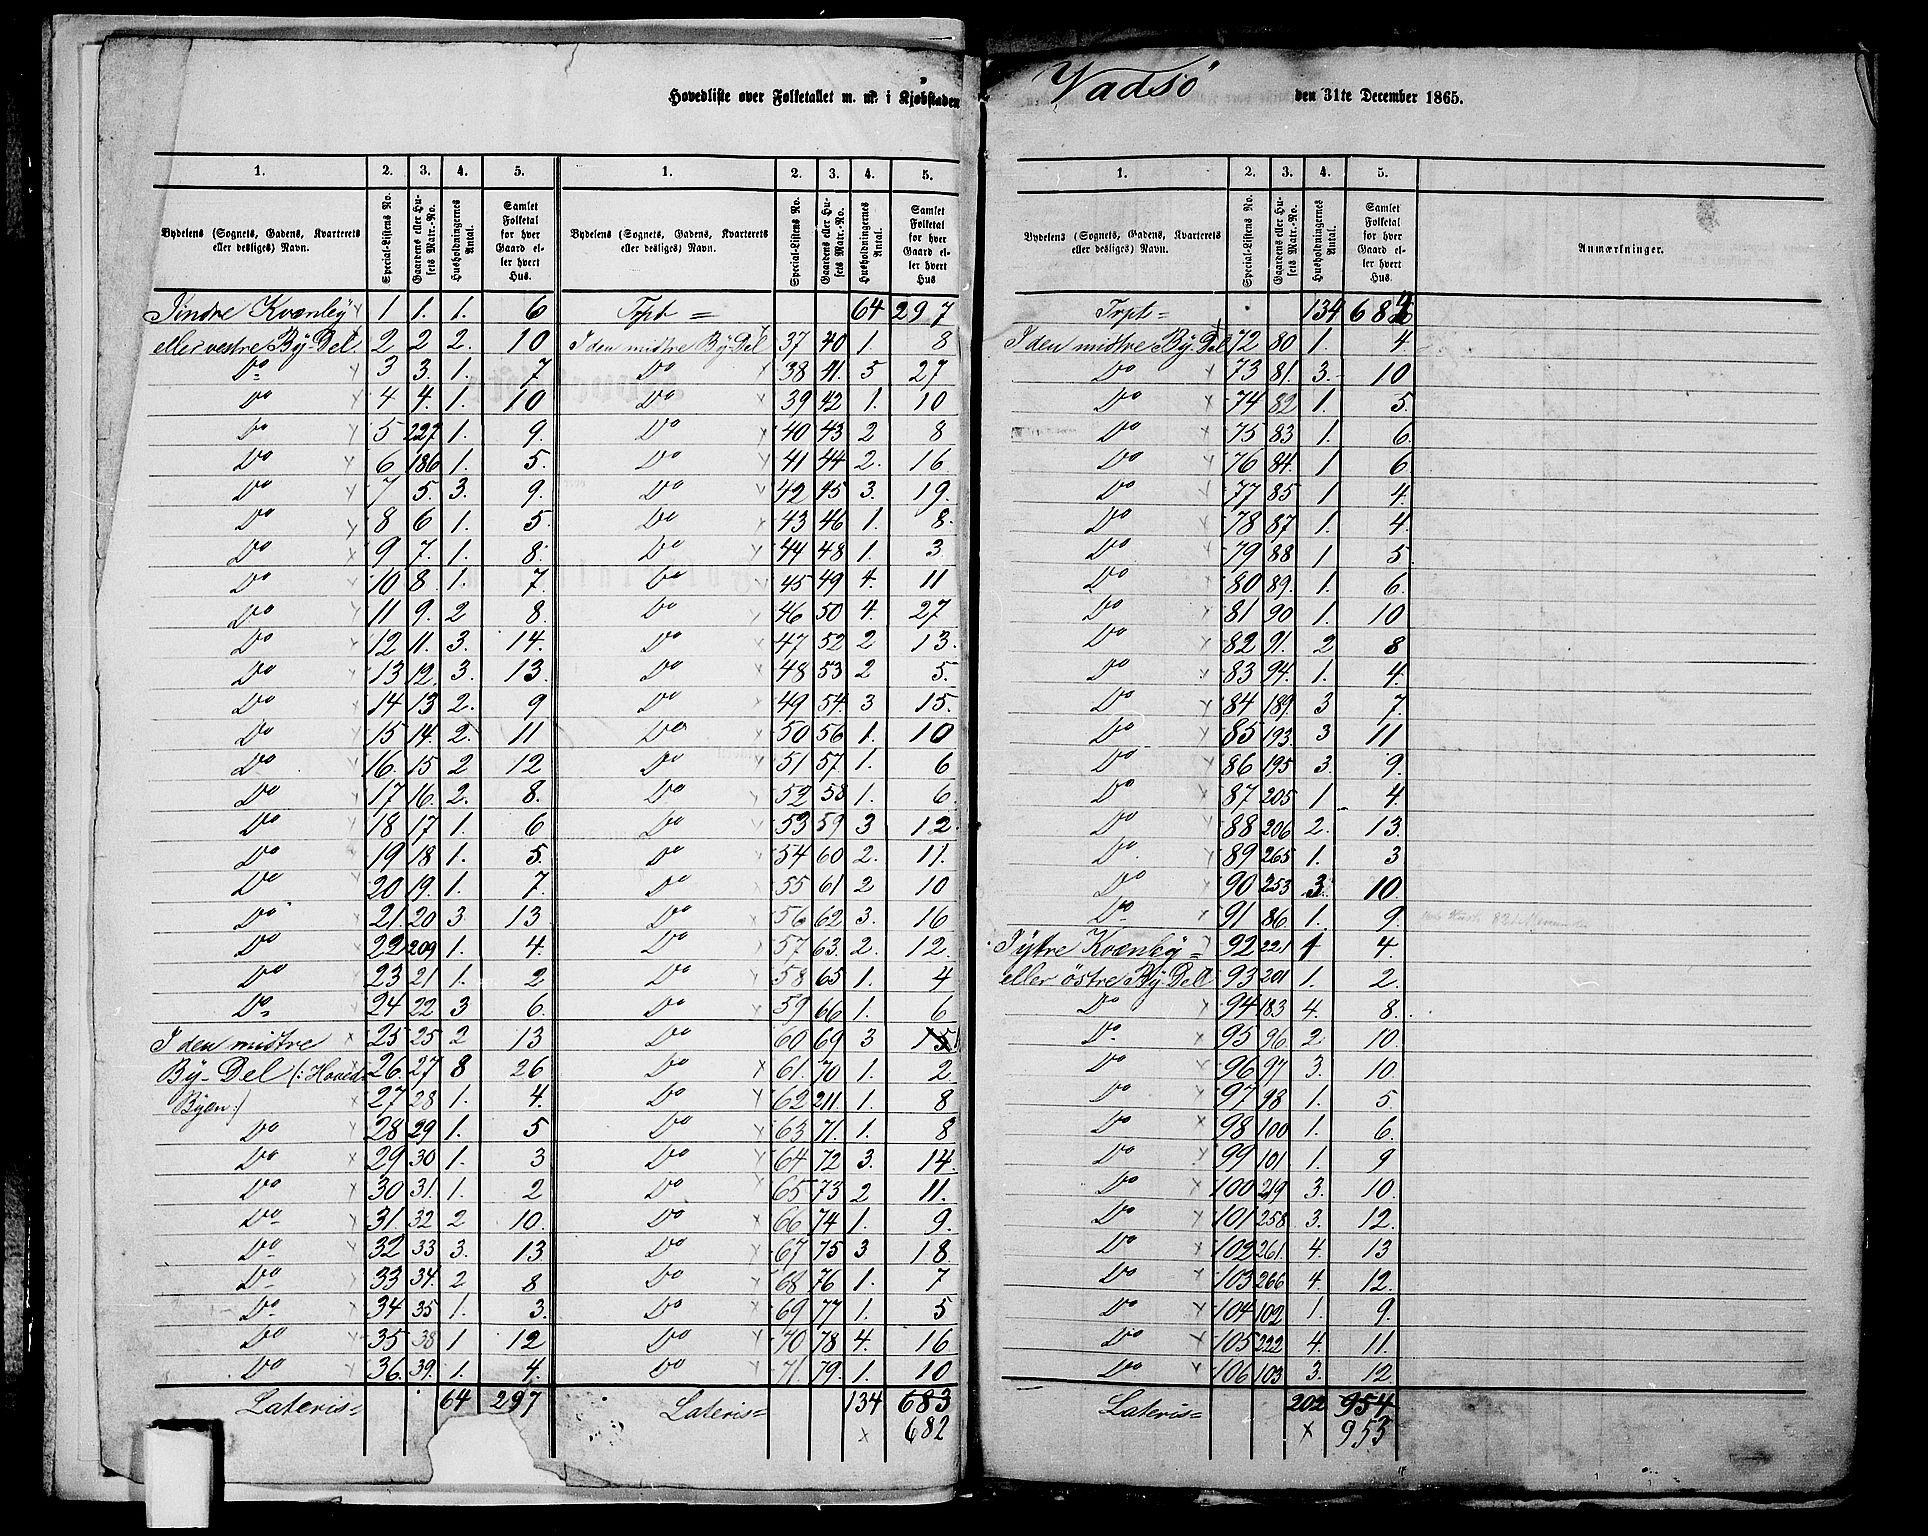 Hovedliste over Folketallet m. m. i Kjøbstaden Vadsö den 31te December 1865.
1. 2. 3. 4. 5. 1. 2. 3. 4. 5.
Bydelens (Sognets, Gadens, Kvarterets eller desliges) Navn. Special-Listens No. Gaardens eller Husets Matr.-No. Husholdningernes Antal. Samlet Folketal for hver Gaard eller hvert Hus. Bydelens (Sognets, Gadens, Kvarterets eller desliges) Navn. Special-Listens No. Gaardens eller Husets Matr.-No. Husholdningernes Antal. Samlet Folketal for hver Gaard eller hvert Hus.
I indre Kvænby 1 1. 1. 6 Trpt = 64 297
eller vestre By-Del. 2 2 2. 10 I den midtre By-Del 37 40 1. 8
Do 3 3. 1. 7 Do 38 41. 5 27
Do 4 4. 1. 10 Do 39 42 1. 10
Do 5 227 1. 9. Do 40 43 2 8
Do 6 186 1. 5. Do 41 44 2. 16
Do 7 5. 3. 9. Do 42 45 3. 19.
Do 8 6 1. 5. Do 43 46 1. 8.
Do 9 7. 1. 8. Do 44 48 1. 3
Do 10 8. 1. 7 Do 45 49 4. 11
Do 11 9. 2 8. Do 46 50 4. 27
Do 12 11. 3. 14. Do 47 52 2 13.
Do 13 12. 3. 13. Do 48 53 2 5.
Do 14 13 2. 9 Do 49 54. 3 15.
Do 15 14. 2. 11 Do 50 56 1. 10
Do 16. 15 2 12 Do 51 57 1. 6
Do 17 16. 2. 8. Do 52 58 1. 6.
Do 18 17 1. 6 Do 53 59 3 12.
Do 19 18 1. 5. Do 54 60 2. 11.
Do 20 19. 1. 7. Do 55 61 2 10
Do 21. 20 3. 13. Do 56. 62 3. 16
Do 22 209 1. 4. Do 57 63. 2. 12.
Do 23 21 1. 2 Do 58 65 1. 4
Do 24 22 3 6. Do 59 66 1. 6
I den midtre 25 25 2 13 Do 60 69 3
By-Del (: Hoved- 26. 27 8 26 Do 61. 70 1. 2.
Byen :) 27 28 1. 4. Do 62 211. 1. 8
Do 28 29 1. 5 Do 63 71. 1. 8
Do 29 30 1. 3 Do 64 72 3. 14.
Do 30 31. 1. 2 Do 65 73 2 11.
Do 31. 32 2 10. Do 66 74 1. 9.
Do 32 33 3. 13 Do 67 75 3 18
Do 33 34. 2 8 Do 68 76 1. 7
Do 34 35 1. 3. Do 69 77 1. 5
Do 35 38 1 12 Do 70 78 4. 16
Do 36. 39. 1. 4. Do 71 79. 1. 10
Lateris= 64 297 Lateris= 134 683
682
1. 2. 3. 4. 5.
Bydelens (Sognets, Gadens, Kvarterets eller desliges) Navn. Special-Listens No. Gaardens eller Husets Matr.-No. Husholdningernes Antal. Samlet Folketal for hver Gaard eller hvert Hus. Anmærkninger.
Trpt= 134 682
I den midtre By-Del 72 80 1. 4.
Do 73 81. 3. 10
Do 74 82 1. 5.
Do 75 83 1. 6.
Do 76 84. 1 6
Do 77 85 1 4.
Do 78 87 1. 4.
Do 79 88 1 5
Do 80 89. 1. 6.
Do 81 90 1. 10
Do 82 91. 2 8
Do 83 94. 1. 4.
Do 84 189. 3 7.
Do 85 193. 3 11
Do 86 195 3. 9.
Do 87 205 1 4.
Do 88 206 2. 13.
Do 89 265 1. 3
Do 90 253 3. 10.
Do 91 86 1. 9.
I ytre Kvænby= 92 221 1 4.
eller östre By-Del 93 201 1. 2.
Do 94 183 4. 8.
Do 95 96 2 10.
Do 96 97 3. 10
Do 97 98 1. 5
Do 98 100 1. 6.
Do 99 101 1. 9
Do 100 219 3. 10.
Do 101 258 3. 12.
Do 102 261. 4. 13
Do 103 266 4. 12.
Do 104 102 1. 9.
Do 105 222 4. 11.
Do 106 103 3. 12.
Lateris= 202 954
953